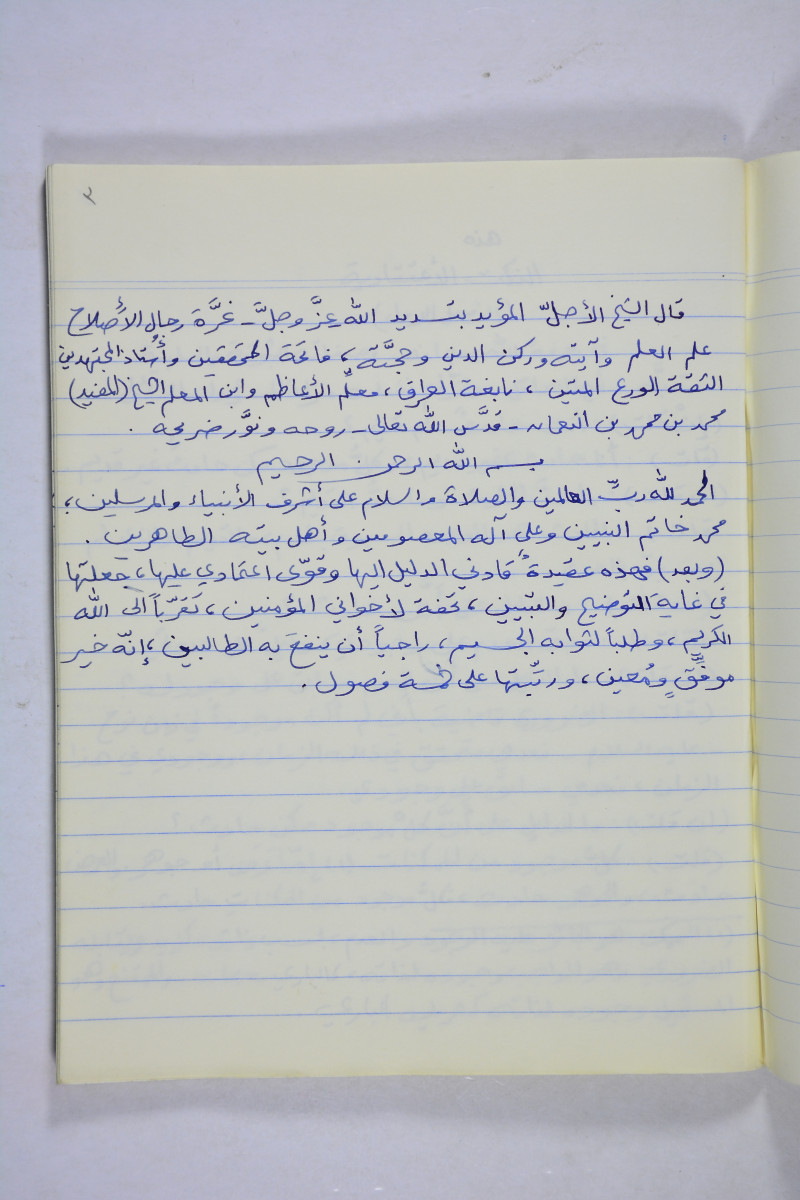 ٣
قال الشيخ الأجلّ المؤيد بتسديد الله عزَّ وجلَّ - غرَّة رجال الأصلاح
علم العلم وآيته وركن الدين وحجته، فاتحة المحققين وأُستاذ المجتهدين
الثقة الورع المتين، نابغة العراق، معلّم الأعاظم وابن المعلم الشيخ (المفيد)
محمد بن محمد بن النعمان - قدَّس الله تعالى - روحه ونوَّر ضريحه .
بسم الله الرحمن الرحيم
الحمد لله ربِّ العالمين والصلاة والسلام على أشرف الأنبياء والمرسلين،
محمد خاتم النبيين وعلى آله المعصومين وأهل بيته الطاهرين .
(وبعد) فهذه عقيدةٌ قادني الدليل إليها وقوّى اعتمادي عليها، جعلتها
في غاية التوضيح والتبيين، تحفة لأخواني المؤمنين، تَقرّباً الى الله
الكريم، وطلباً لثوابه الجسيم، راجياً أن ينفعَ به الطالبين، إنّه خير
موفّقٍ ومُعين، ورتّبتها على خمسة فصول.